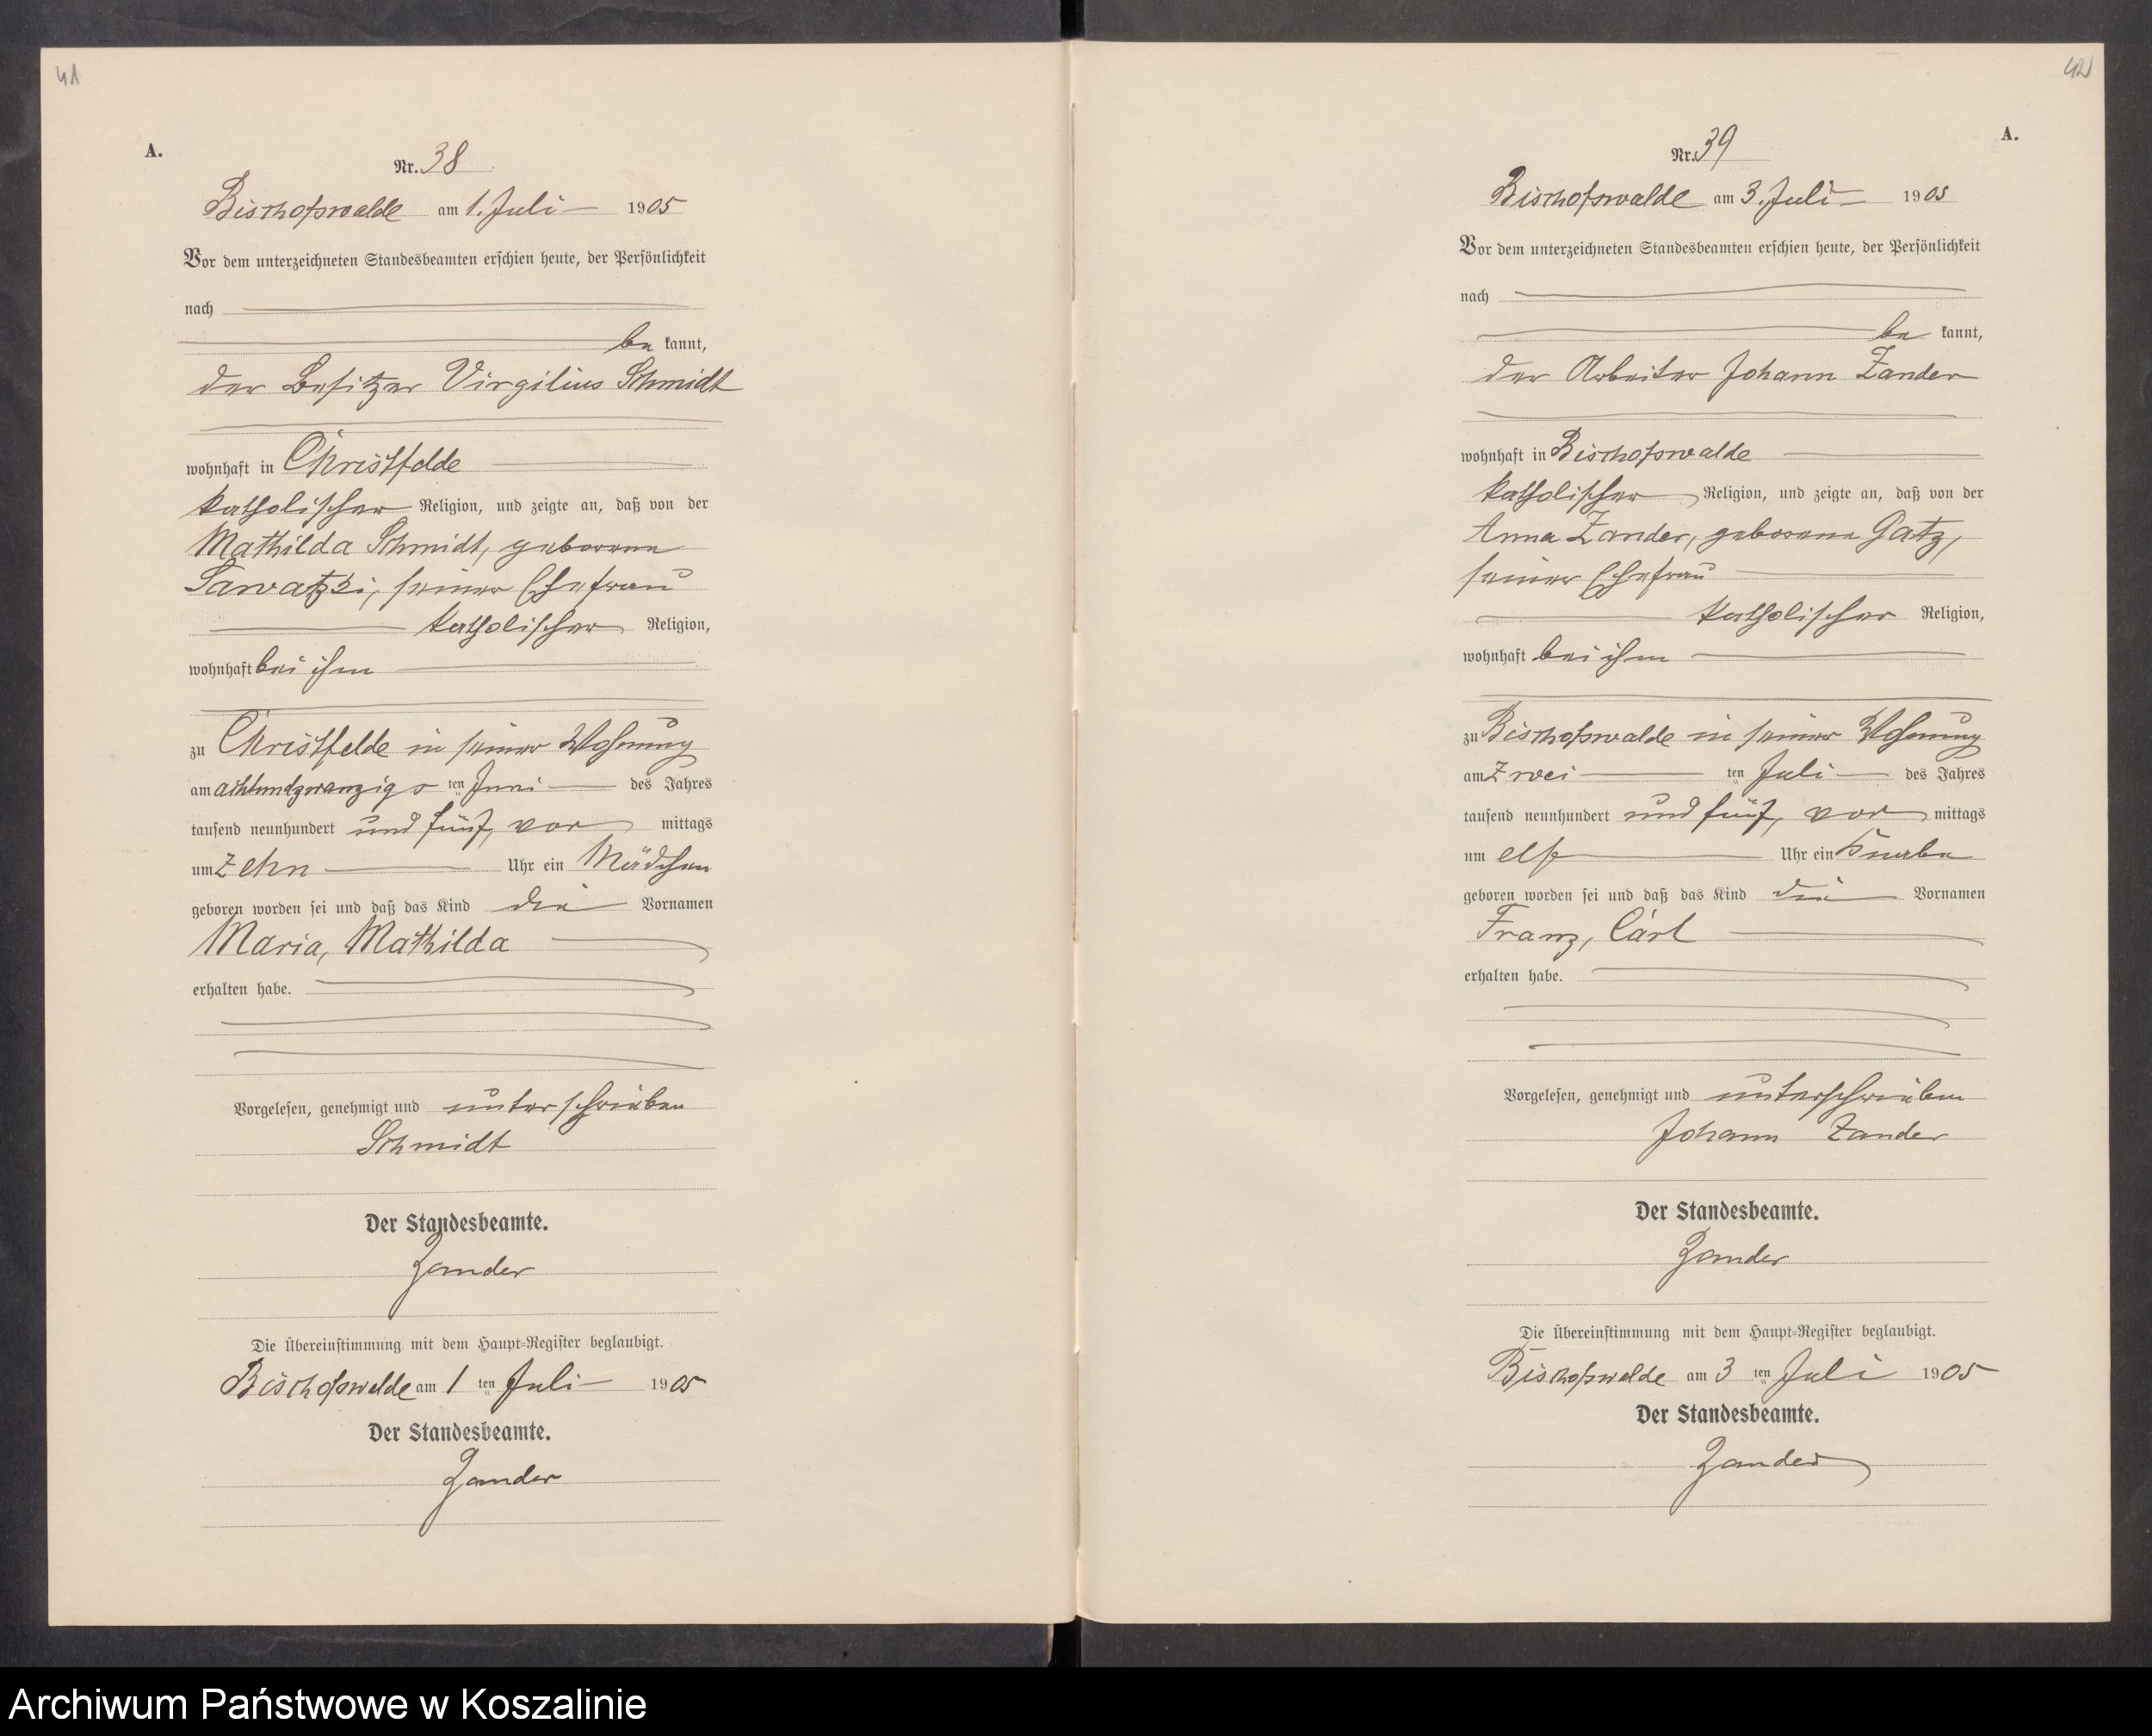 41
A.
Nr. 38
Bischofswalde am 1. Juli 1905
Vor dem unterzeichneten Standesbeamten erschien heute, der Persönlichkeit
nach
be kannt,
der Besitzer Virgilius Schmidt
wohnhaft in Christfelde
katholischer Religion, und zeigte an, daß von der
Mathilda Schmidt, geborene
Sawatzki, seiner Ehefrau
katholischer Religion,
wohnhaft bei ihm
zu Christfelde in seiner Wohnung
am achtundzwanzigs ten Juni des Jahres
tausend neunhundert und fünf, vor mittags
um zehn Uhr ein Mädchen
geboren worden sei und daß das Kind die Vornamen
Maria, Mathilda
erhalten habe.
Vorgelesen, genehmigt und unterschrieben
Schmidt
Der Standesbeamte.
Zander
Die Übereinstimmung mit dem Haupt-Register beglaubigt.
Bischofswalde am 1 ten Juli 1905
Der Standesbeamte.
Zander
42
A.
Nr. 39
Bischofswalde am 3. Juli 1905
Vor dem unterzeichneten Standesbeamten erschien heute, der Persönlichkeit
nach
be kannt,
der Arbeiter Johann Zander
wohnhaft in Bischofswalde
katholischer Religion, und zeigte an, daß von der
Anna Zander, geborene Gatz,
seiner Ehefrau
katholischer Religion,
wohnhaft bei ihm
zu Bischofswalde in seiner Wohnung
am zwei ten Juli des Jahres
tausend neunhundert und fünf, vor mittags
um elf Uhr ein Knabe
geboren worden sei und daß das Kind die Vornamen
Franz, Carl
erhalten habe.
Vorgelesen, genehmigt und unterschrieben
Johann Zander
Der Standesbeamte.
Zander
Die Übereinstimmung mit dem Haupt-Register beglaubigt.
Bischofswalde am 3 ten Juli 1905
Der Standesbeamte.
Zander
Archiwum Państwowe w Koszalinie